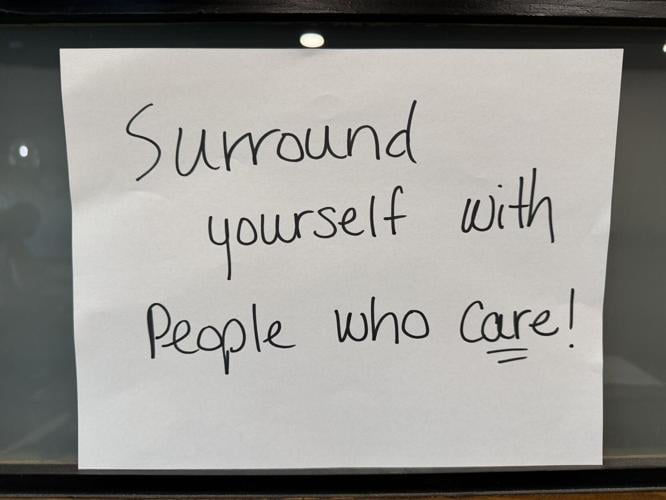 Surround
yourself with
People who care!